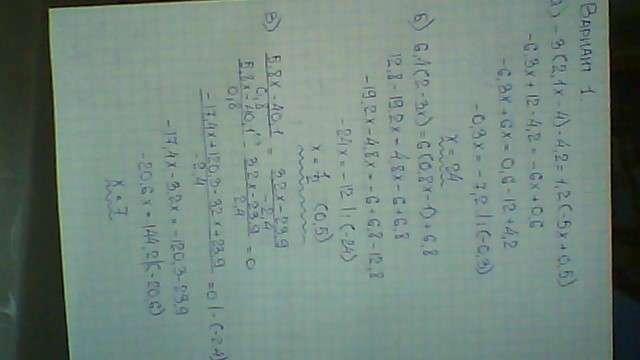 Вариант 1.
а) -3(2,1x-4)-4,2=1,2(-5x+0,5)
-6,3x+12-4,2=-6x+0,6
-6,3x+6x=0,6-12+4,2
-0,3x=-7,2 |:(-0,3)
x=24
б) 6,4(2-3x)=6(0,8x-1)+6,8
12,8-19,2x=4,8x-6+6,8
-19,2x-4,8x=-6+6,8-12,8
-24x=-12 |:(-24)
x=1/2 (0,5)
в) 5,8x-40,1/0,8 = 3,2x-23,9/-2,4
5,8x-40,1/0,8 - 3,2x-23,9/2,4 =0
-17,4x+120,3-3,2x+23,9/-2,4 =0 |·(-2,4)
-17,4x-3,2x=-120,3-23,9
-20,6x=144,2|(-20,6)
x=7